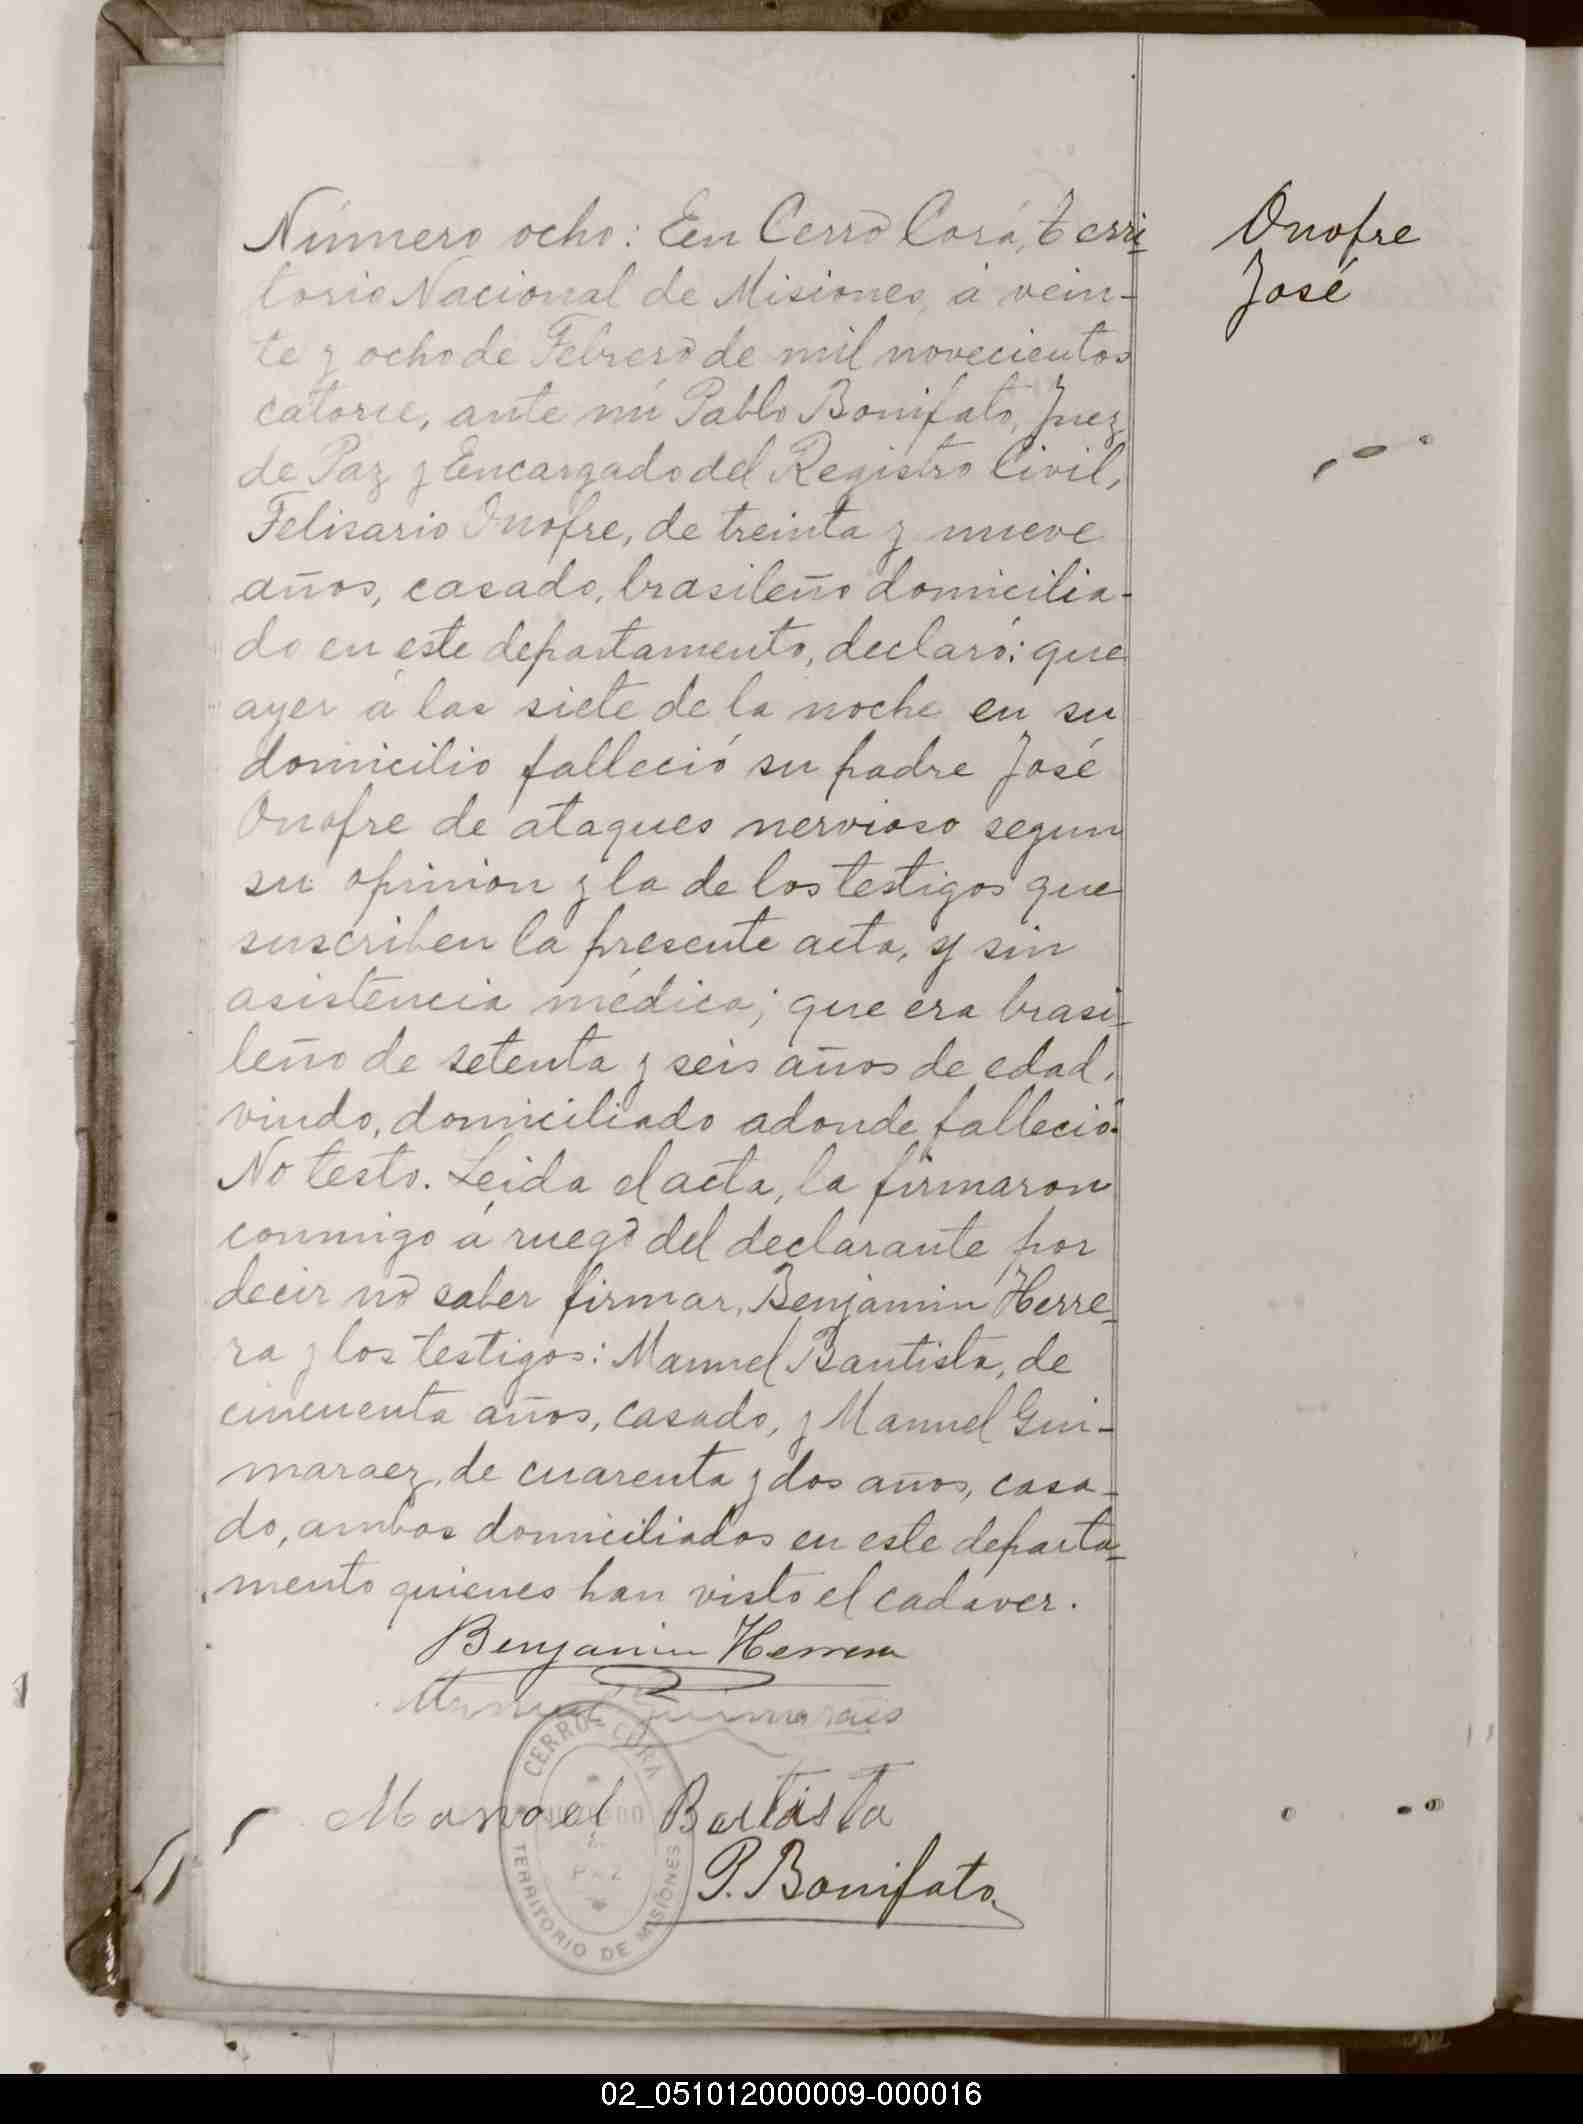 Número ocho: En Cerro Corá, Terri-
torio Nacional de Misiones, á vein-
te y ocho de Febrero de mil novecientos
catorce, ante mi Pablo Bonifato, Juez
de Paz y Encargado del Registro Civil,
Felisario Onofre, de treinta y nueve
años, casado, brasileño domicilia-
do en este departamento, declaró: que
ayer á las siete de la noche en su
domicilio falleció su padre José
Onofre de ataques nervioso segun
su opinion y la de los testigos que
suscriben la presente acta, y sin
asistencia médica; que era brasi-
leño de setenta y seis años de edad,
viudo, domiciliado adonde falleció.
No testo. Leida el acta, la firmaron
conmigo á ruego del declarante por
decir no saber firmar, Benjamin Herre-
ra y los testigos: Manuel Bautista, de
cincuenta años, casado, y Manuel Gui-
maraez, de cuarenta y dos años, casa-
do, ambos domiciliados en este departa-
mento quienes han visto el cadaver.
Benjamin Herrera
Manuel Guimarães
Manoel Bautista
P. Bonifato
Onofre
José
CERRO-CORA
JUZGADO
DE
PAZ
TERRITORIO DE MISIONES
02_051012000009-000016